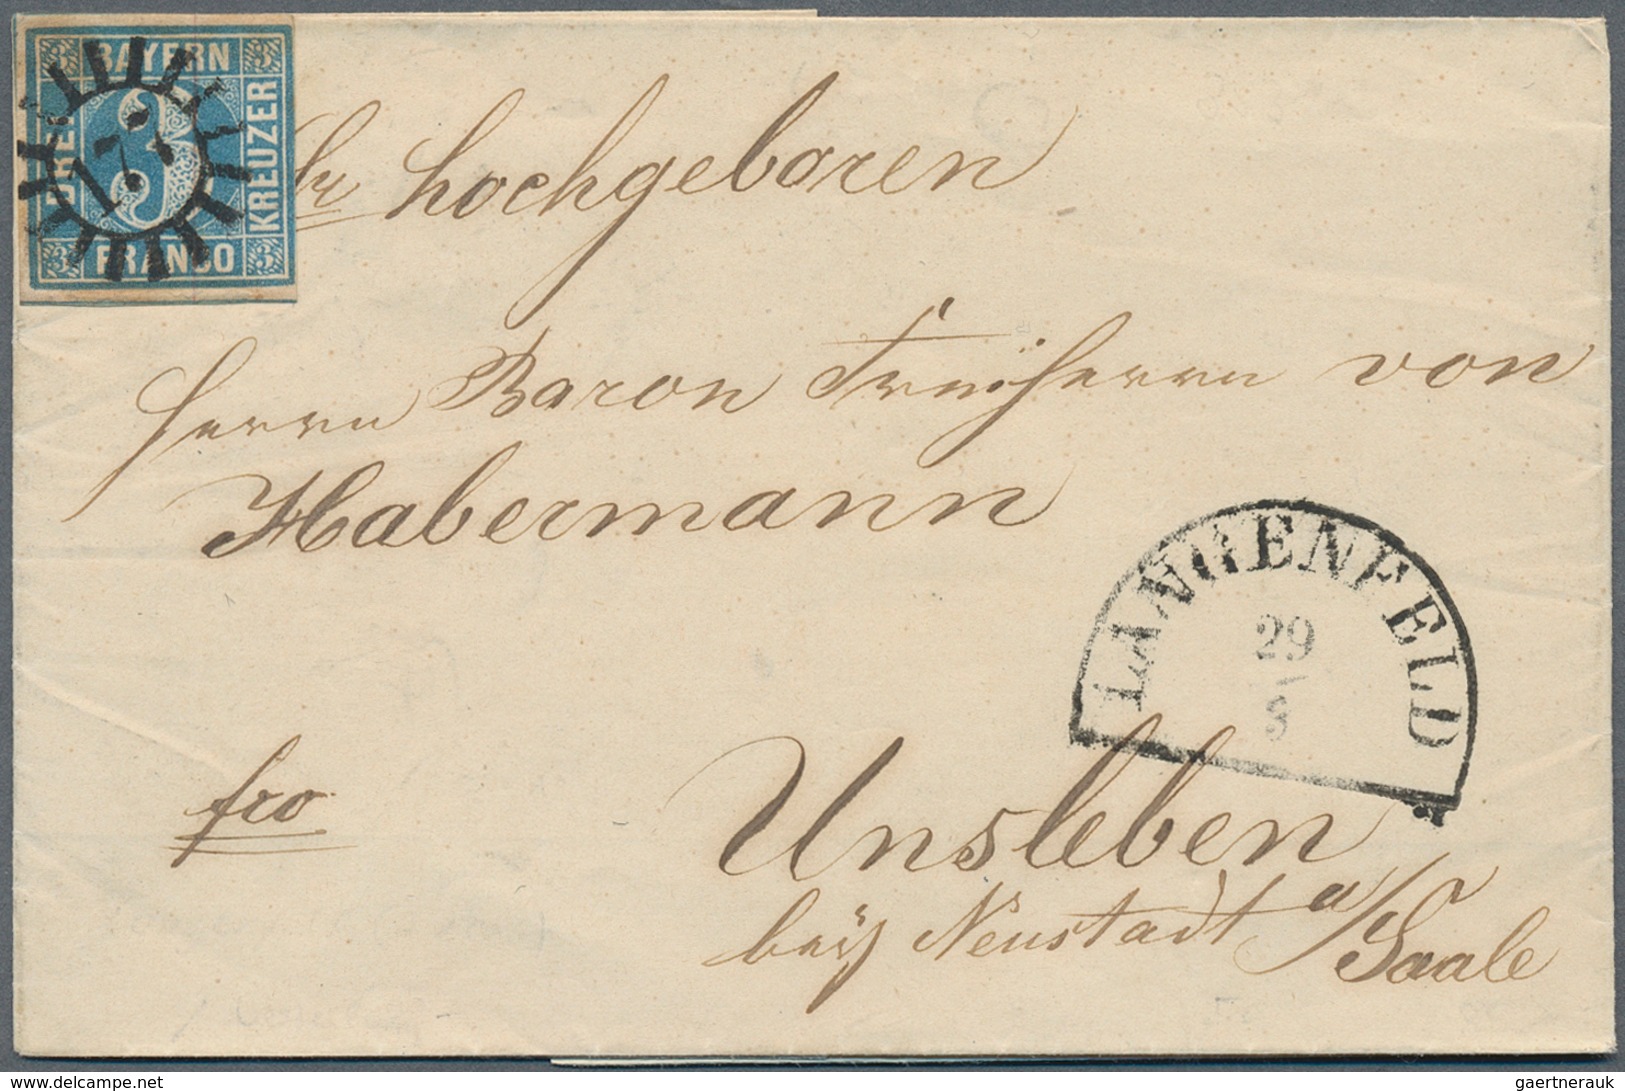 3 BAYERN 3
DREI 3 KREUZER
177
3 FRANCO 3
hochgeboren
Herrn Baron Freiherrn von
Habermann
LANGENFELD
29
8
fro
Unsleben
bey Neustadt a/Saale
www.delcampe.net
gaertnerauk